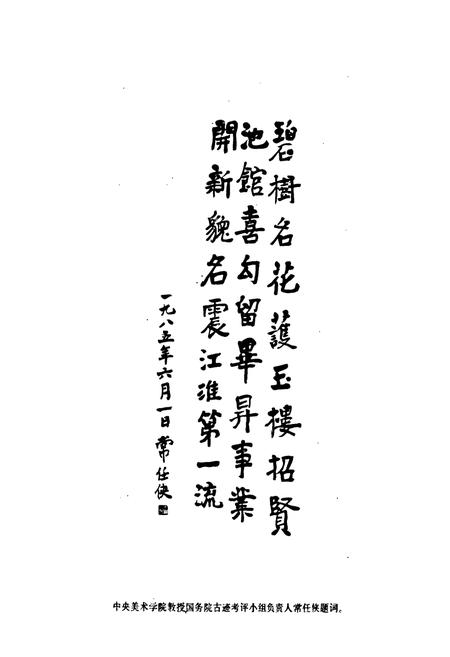 碧樹名花護玉樓招賢
池館喜勾留畢昇事業
開新貌名震江淮第一流
一九八五年六月一日常任俠
中央美术学院教授国务院古迹考评小组负责人常任侠题词。